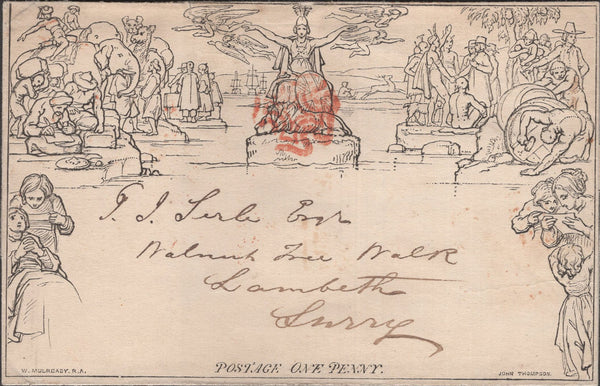 T. J. Serle Esqr
Walnut Tree Walk
Lambeth
Surry
POSTAGE ONE PENNY.
W. MULREADY. R.A.
JOHN THOMPSON